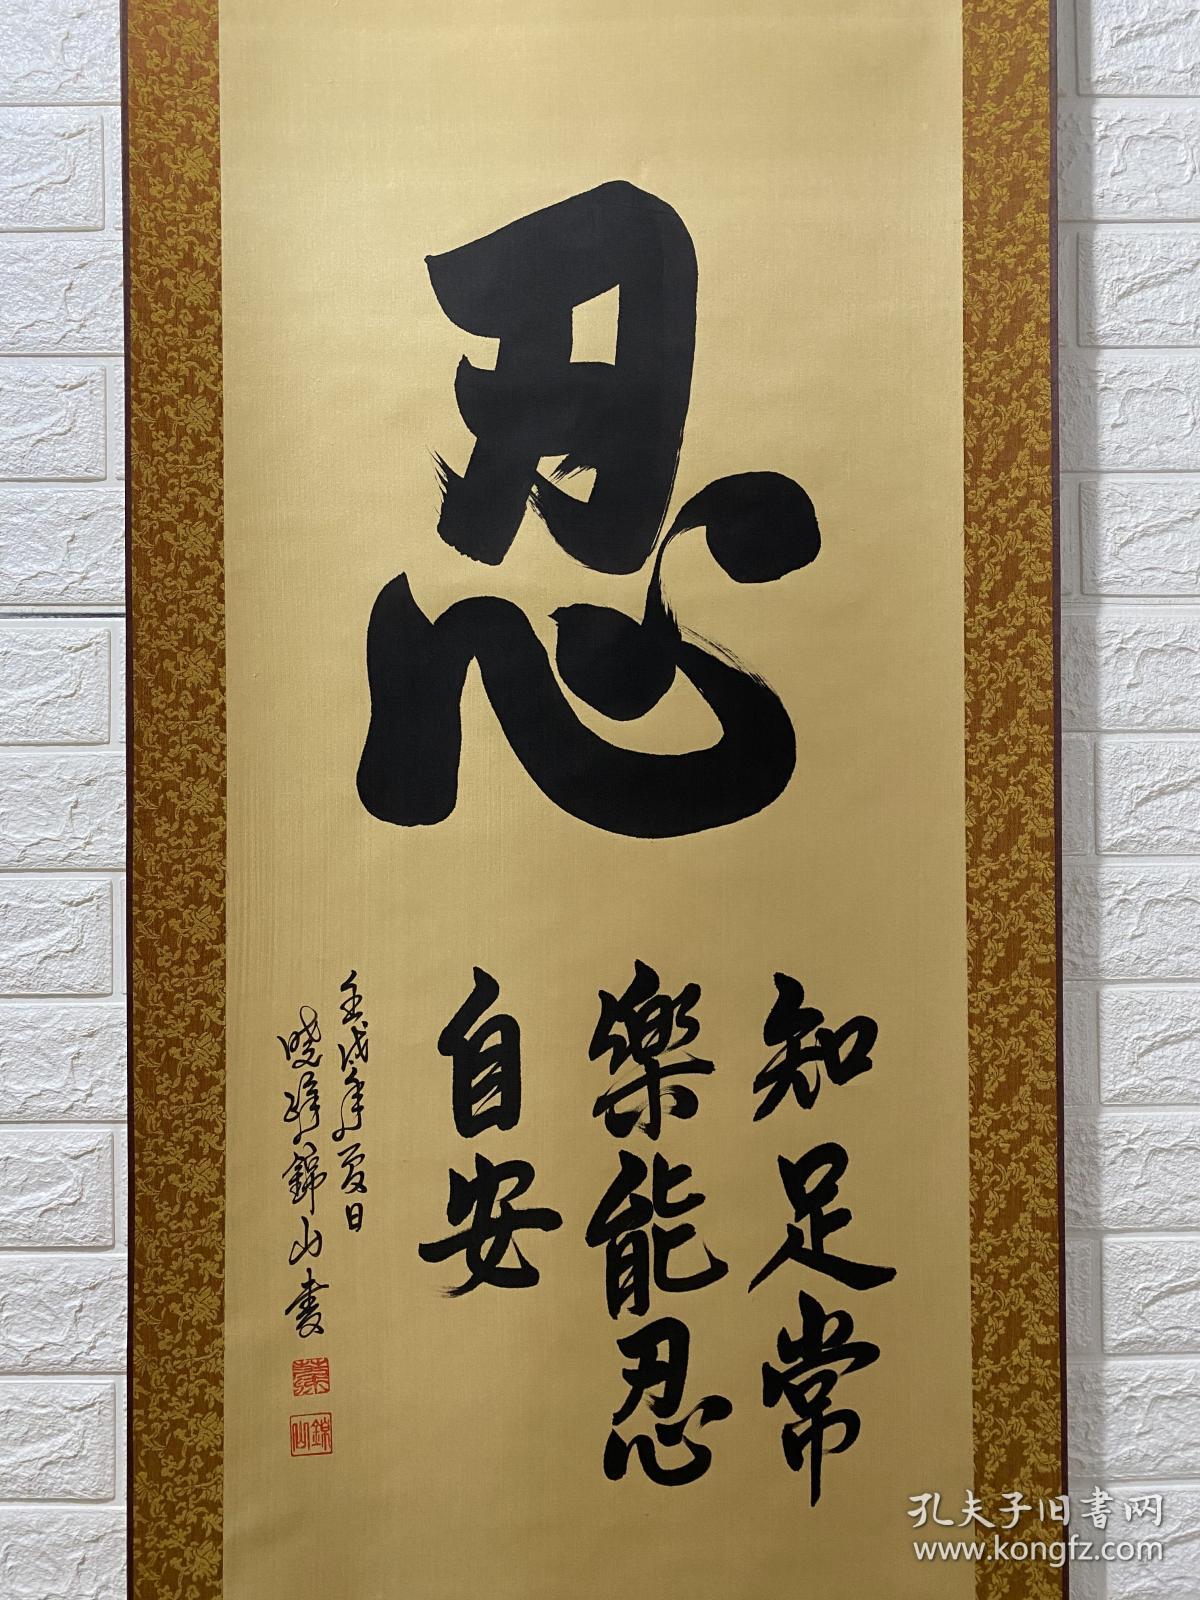 忍
知足常
樂能忍
自安
壬戌年夏日
曉峰錦山書
錦山
孔夫子旧書网
www.kongfz.com